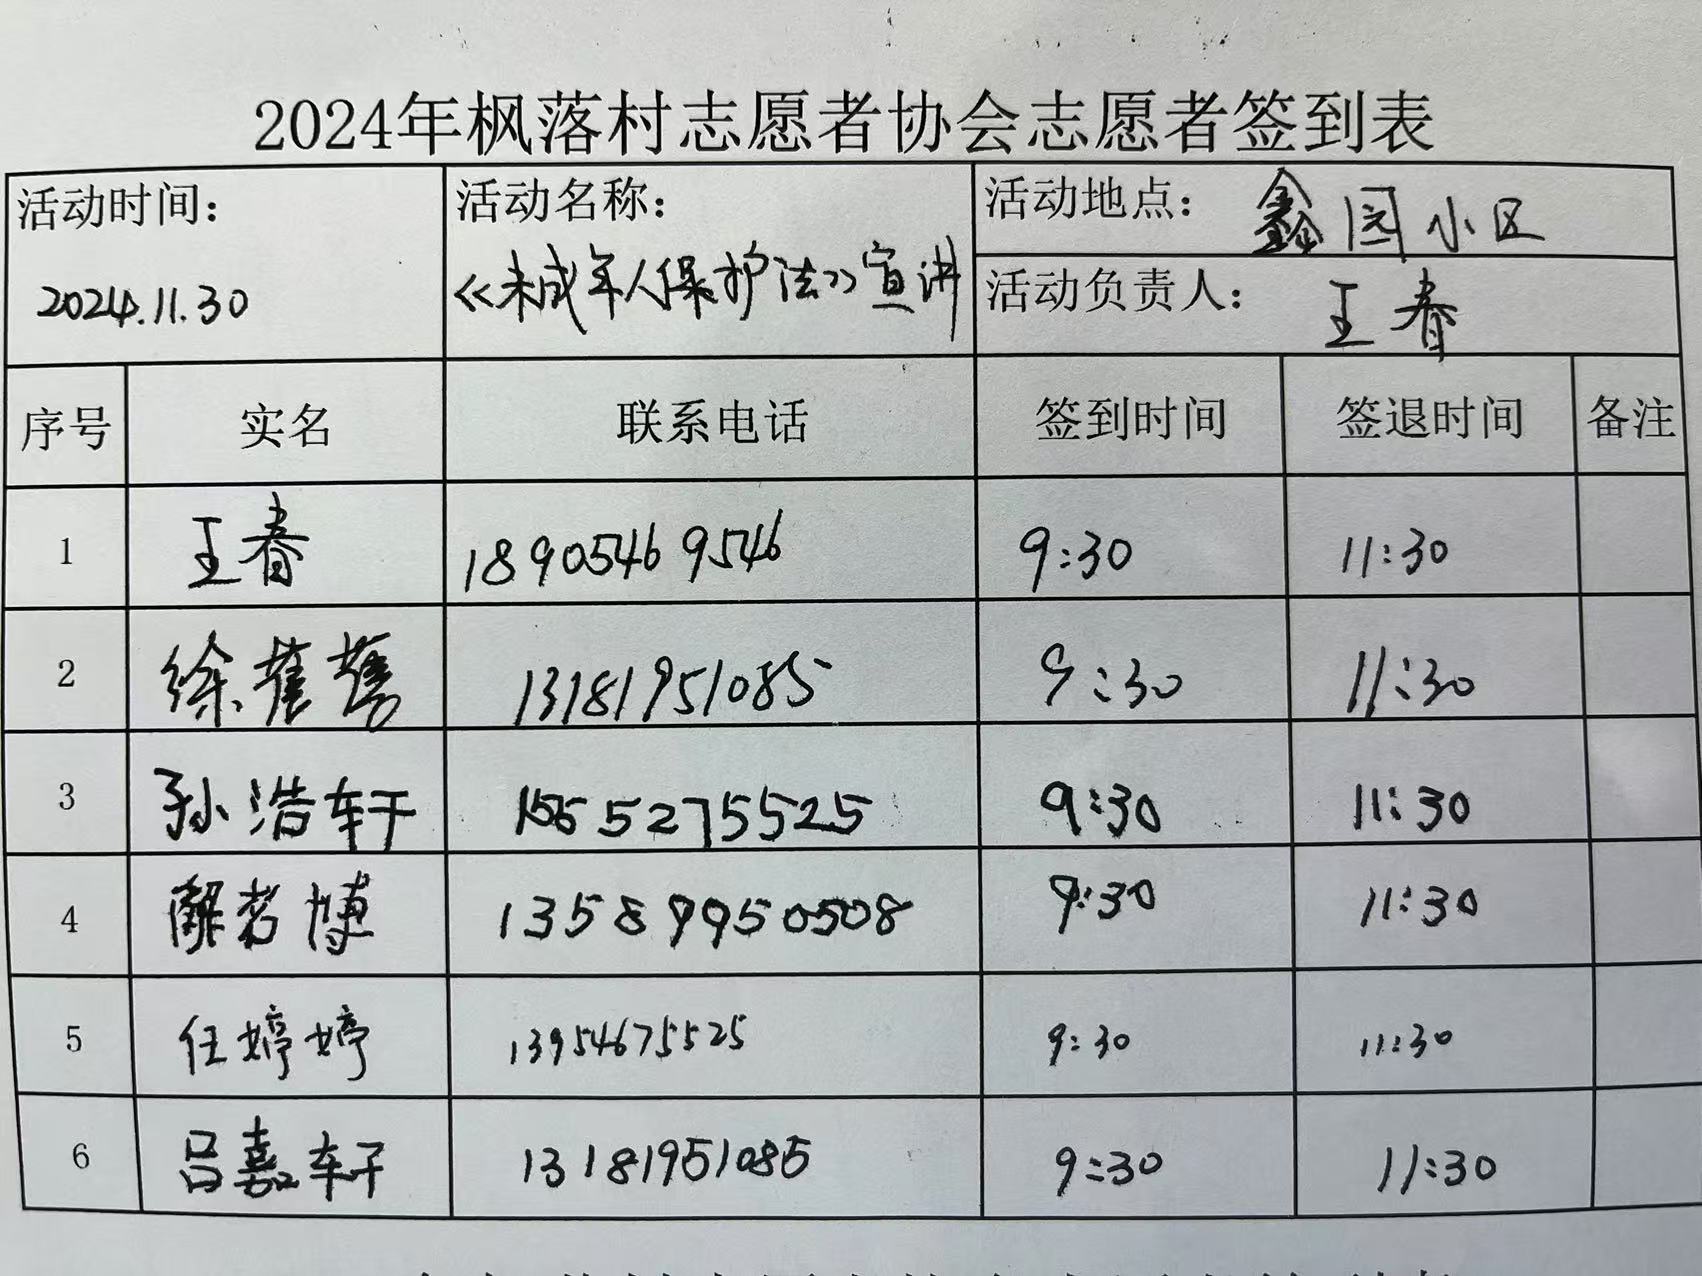 2024年枫落村志愿者协会志愿者签到表
活动时间：
2024.11.30
活动名称：
《未成年人保护法》宣讲
活动地点： 鑫园小区
活动负责人： 王春
序号 实名 联系电话 签到时间 签退时间 备注
1 王春 18905469546 9:30 11:30
2 徐 13181951085 9:30 11:30
3 孙浩轩 5275525 9:30 11:30
4 博 13589950508 9:30 11:30
5 任婷婷 13954675525 9:30 11:30
6 吕嘉轩 13181951085 9:30 11:30